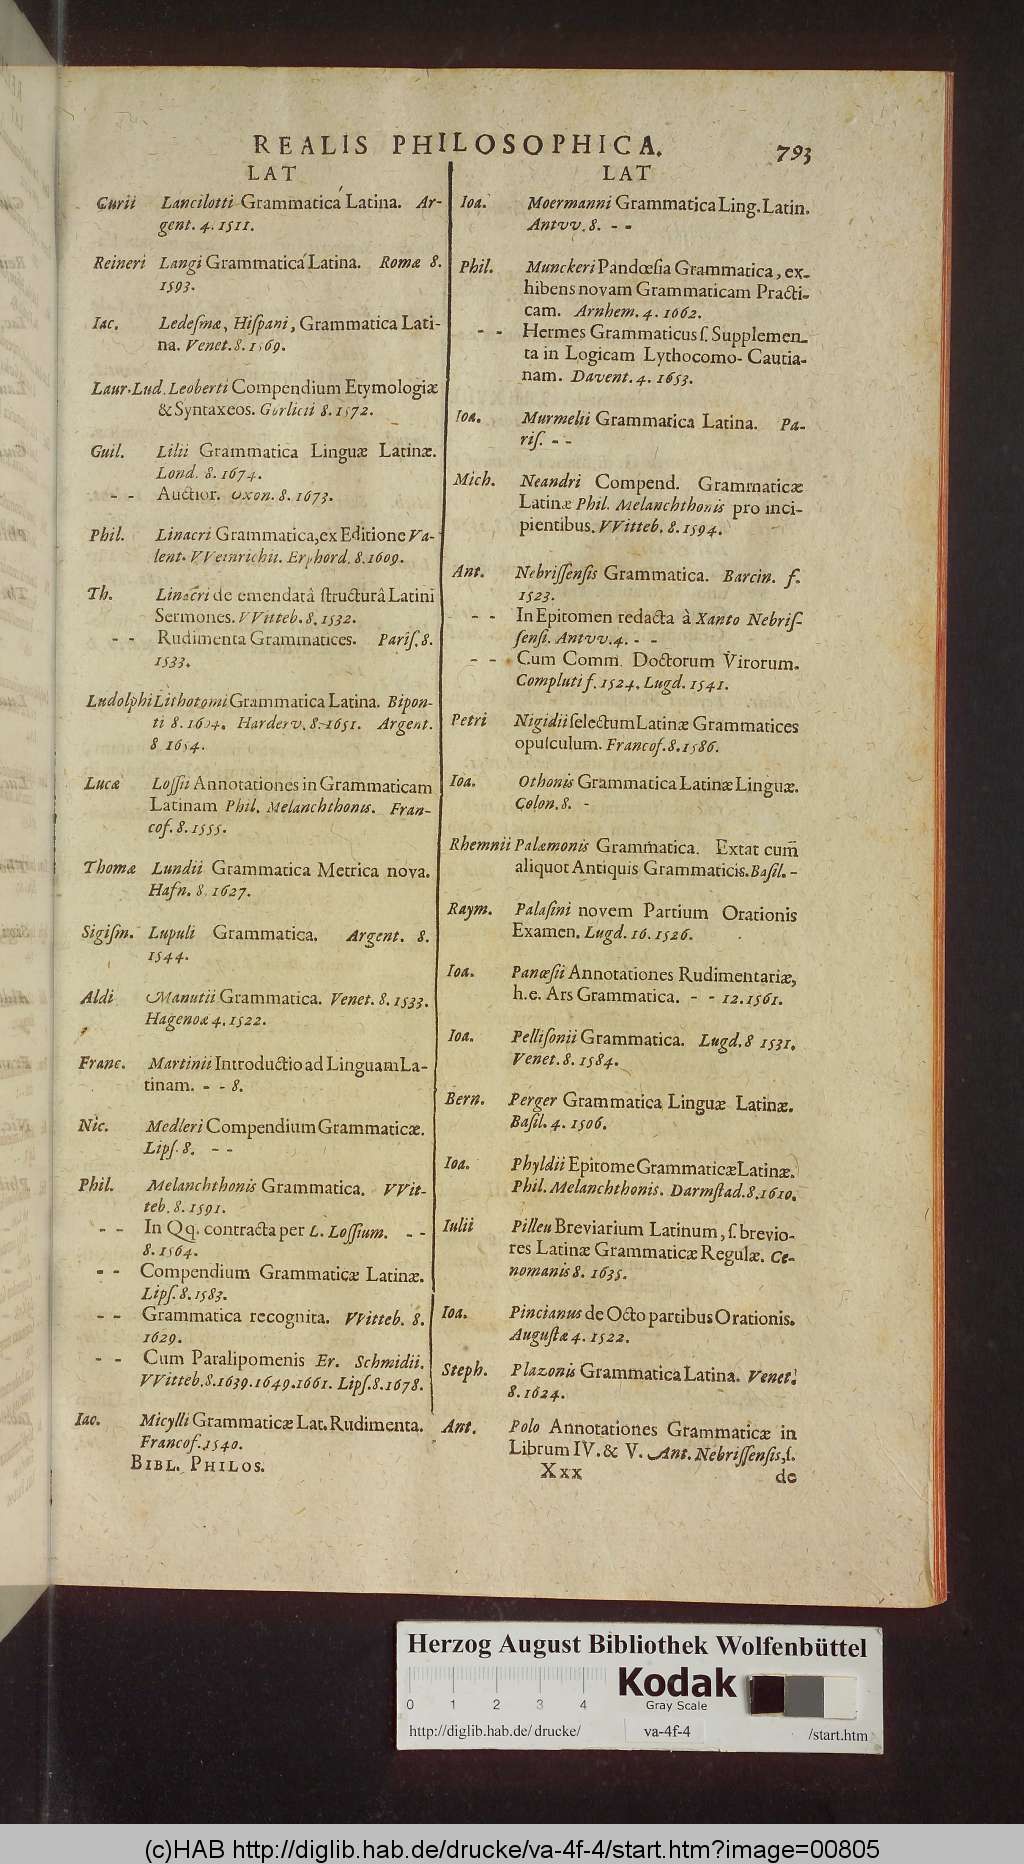 REALIS PHILOSOPHICA. 793
LAT
Curii Lancilotti Grammatica Latina. Ar-
gent. 4. 1511.
Reineri Langi Grammatica Latina. Romæ 8.
1593.
Iac. Ledeſmæ, Hiſpani, Grammatica Lati-
na. Venet. 8. 1569.
Laur. Lud. Leoberti Compendium Etymologiæ
& Syntaxeos. Gorlicii 8. 1572.
Guil. Lilii Grammatica Linguæ Latinæ.
Lond. 8. 1674.
- - Auctior. Oxon. 8. 1673.
Phil. Linacri Grammatica, ex Editione Va-
lent. VVeinrichii. Erphord. 8. 1609.
Th. Linacri de emendatâ ſtructurâ Latini
Sermones. VVitteb. 8. 1532.
- - Rudimenta Grammatices. Pariſ. 8.
1533.
Ludolphi Lithotomi Grammatica Latina. Bipon-
ti 8. 1604. Harderv. 8. 1651. Argent.
8 1654.
Lucæ Loſſii Annotationes in Grammaticam
Latinam Phil. Melanchthonis. Fran-
cof. 8. 1555.
Thomæ Lundii Grammatica Metrica nova.
Hafn. 8. 1627.
Sigiſm. Lupuli Grammatica. Argent. 8.
1544.
Aldi Manutii Grammatica. Venet. 8. 1533.
Hagenoæ 4. 1522.
Franc. Martinii Introductio ad Linguam La-
tinam. - - 8.
Nic. Medleri Compendium Grammaticæ.
Lipſ. 8. - -
Phil. Melanchthonis Grammatica. VVit-
teb. 8. 1591.
- - In Qq. contracta per L. Loſſium. - -
8. 1564.
- - Compendium Grammaticæ Latinæ.
Lipſ. 8. 1583.
- - Grammatica recognita. VVitteb. 8.
1629.
- - Cum Paralipomenis Er. Schmidii.
VVitteb. 8. 1639. 1649. 1661. Lipſ. 8. 1678.
Iac. Micylli Grammaticæ Lat. Rudimenta.
Francof. 1540.
BIBL. PHILOS.
LAT
Ioa. Moermanni Grammatica Ling. Latin.
Antvv. 8. - -
Phil. Munckeri Pandœſia Grammatica, ex-
hibens novam Grammaticam Practi-
cam. Arnhem. 4. 1662.
- - Hermes Grammaticus ſ. Supplemen-
ta in Logicam Lythocomo-Cautia-
nam. Davent. 4. 1653.
Ioa. Murmelii Grammatica Latina. Pa-
riſ. - -
Mich. Neandri Compend. Grammaticæ
Latinæ Phil. Melanchthonis pro inci-
pientibus. VVitteb. 8. 1594.
Ant. Nebriſſenſis Grammatica. Barcin. f.
1523.
- - In Epitomen redacta à Xanto Nebriſ-
ſenſi. Antvv. 4. - -
- - Cum Comm. Doctorum Virorum.
Compluti f. 1524. Lugd. 1541.
Petri Nigidii ſelectum Latinæ Grammatices
opuſculum. Francof. 8. 1586.
Ioa. Othonis Grammatica Latinæ Linguæ.
Colon. 8. -
Rhemnii Palæmonis Grammatica. Extat cum
aliquot Antiquis Grammaticis. Baſil. -
Raym. Palaſini novem Partium Orationis
Examen. Lugd. 16. 1526.
Ioa. Panœſii Annotationes Rudimentariæ,
h. e. Ars Grammatica. - - 12. 1561.
Ioa. Pelliſonii Grammatica. Lugd. 8 1531.
Venet. 8. 1584.
Bern. Perger Grammatica Linguæ Latinæ.
Baſil. 4. 1506.
Ioa. Phyldii Epitome Grammaticæ Latinæ.
Phil. Melanchthonis. Darmſtad. 8. 1610.
Iulii Pilleu Breviarium Latinum, ſ. brevio-
res Latinæ Grammaticæ Regulæ. Ce-
nomanis 8. 1635.
Ioa. Pincianus de Octo partibus Orationis.
Auguſtæ 4. 1522.
Steph. Plazonis Grammatica Latina. Venet.
8. 1624.
Ant. Polo Annotationes Grammaticæ in
Librum IV. & V. Ant. Nebriſſenſis, ſ.
Xxx de
Herzog August Bibliothek Wolfenbüttel
0 1 2 3 4
Kodak
Gray Scale
http://diglib.hab.de/drucke/ va-4f-4 /start.htm
(c)HAB http://diglib.hab.de/drucke/va-4f-4/start.htm?image=00805